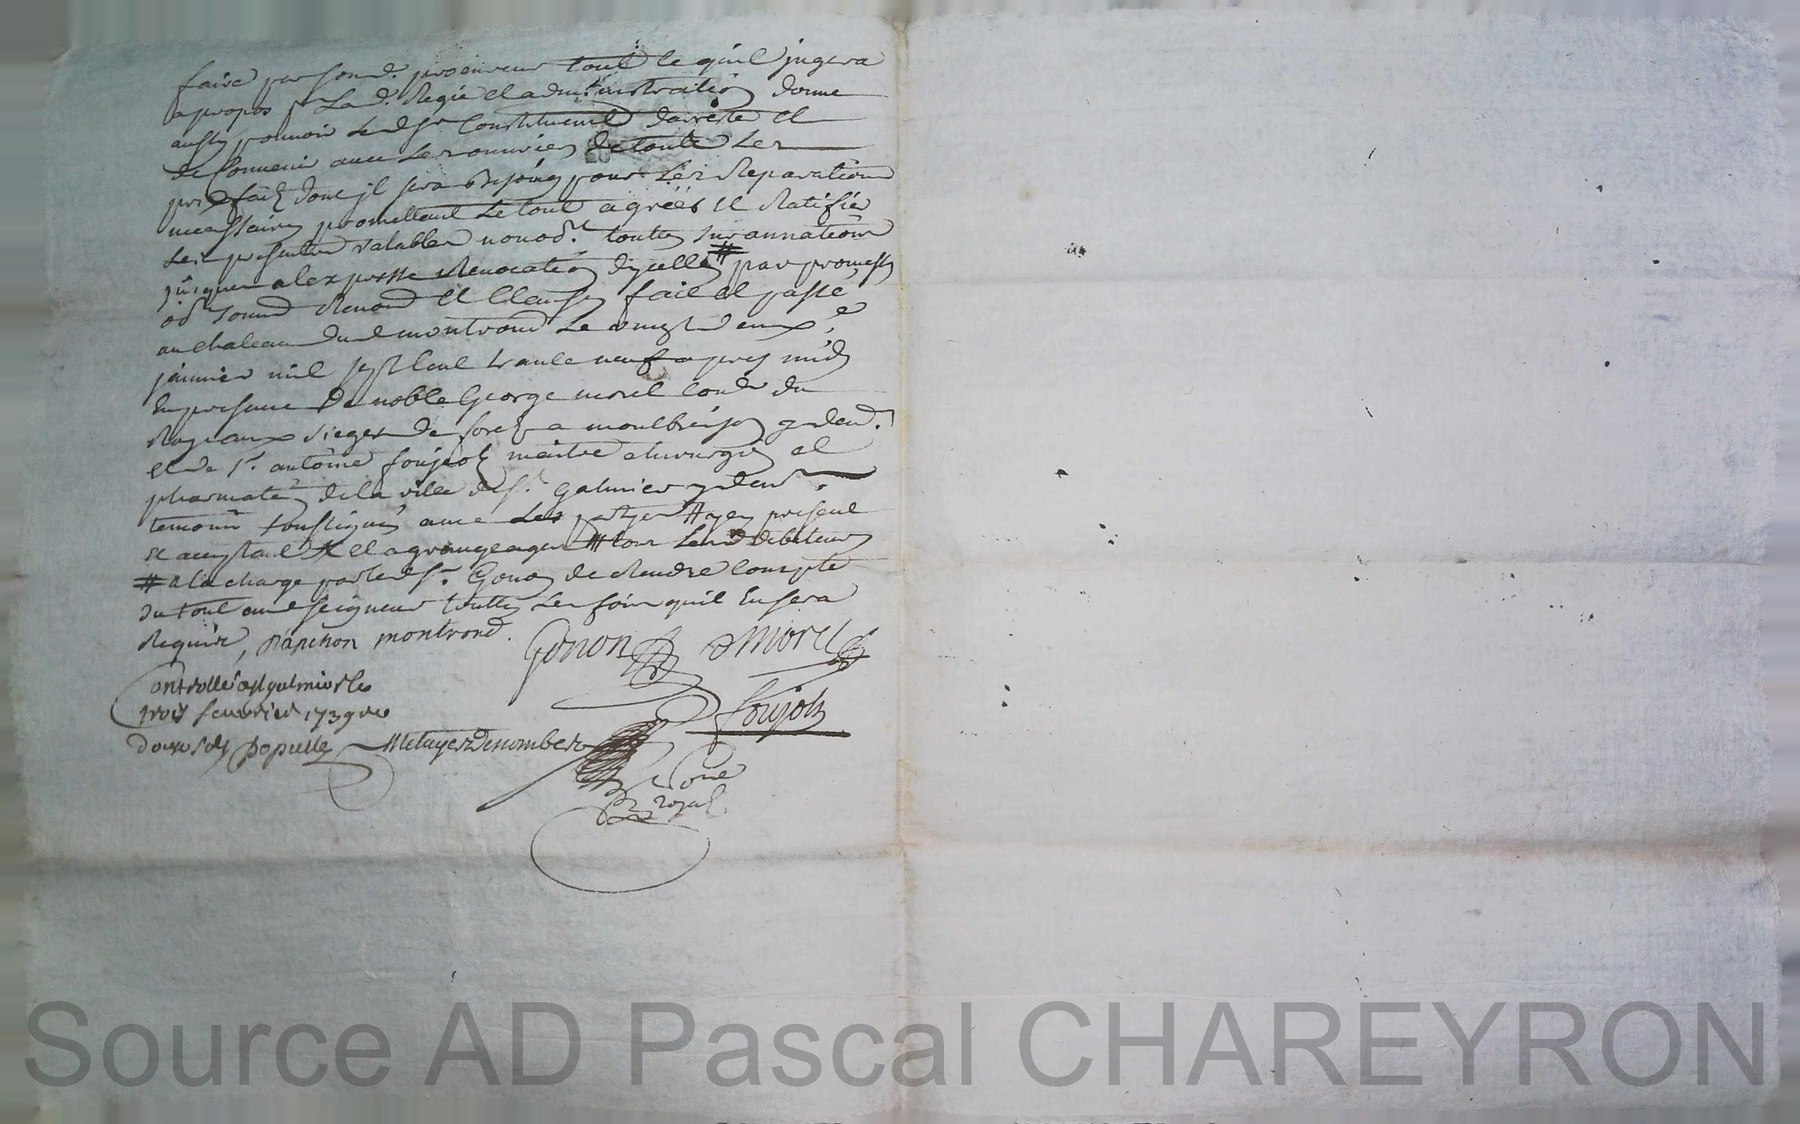 faire par sond. procureur tout ce quil jugera
apropos pr Lad. Regie et administration donne
aussy pouvoir Led Sr Constituant darreter et
de Convenir avec Les ouvriers de toute Les
prixfait dont jl sera besoing pour Les Reparations
necessaires promettant Le tout agréér et Ratifié
Les presentes valables nonobt. toutes surannations
jusques alexpresse Revocation dycelles # par promesses
obt soumd Renond et Clauses fait et passé
au chateau dud montrond Le vingt deuxe
janvier mil sept Cent trante neuf apres midy
En presence De noble George morel Conr du
Roy aux sieges de forest a montbrison y demt.
et de Sr. antoine foujols maitre chirurgien et
pharmatien dela ville de St. Galmier y demt.
temoins soussignés avec Les parties # ayen present
et acceptant # et agrangeages # tous Les debiteurs
# ala charge par led Sr. Gonon de Rendre Compte
du tout aud seigneur toutes Les fois quil En sera
Requis, Papchon montrond. Gonon Morel
Controllé a St galmier le
trois feuvrier 1739 Reçu
douze sols Populle Metayer Denombret foujols
Nore
Royal
Source AD Pascal CHAREYRON